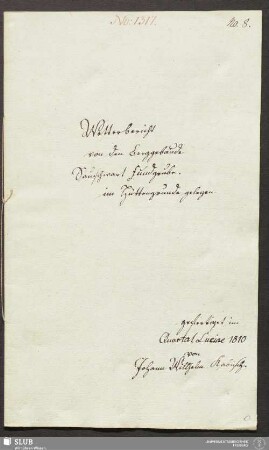 No. 1317.
No. 8.
Wetterbericht
von dem Berggebäude
Sauschwart Fundgrube.
im Hüttengrunde gelegen
gefertiget im
Quartal Luciae 1810
von
Johann Wilhelm
SLUB